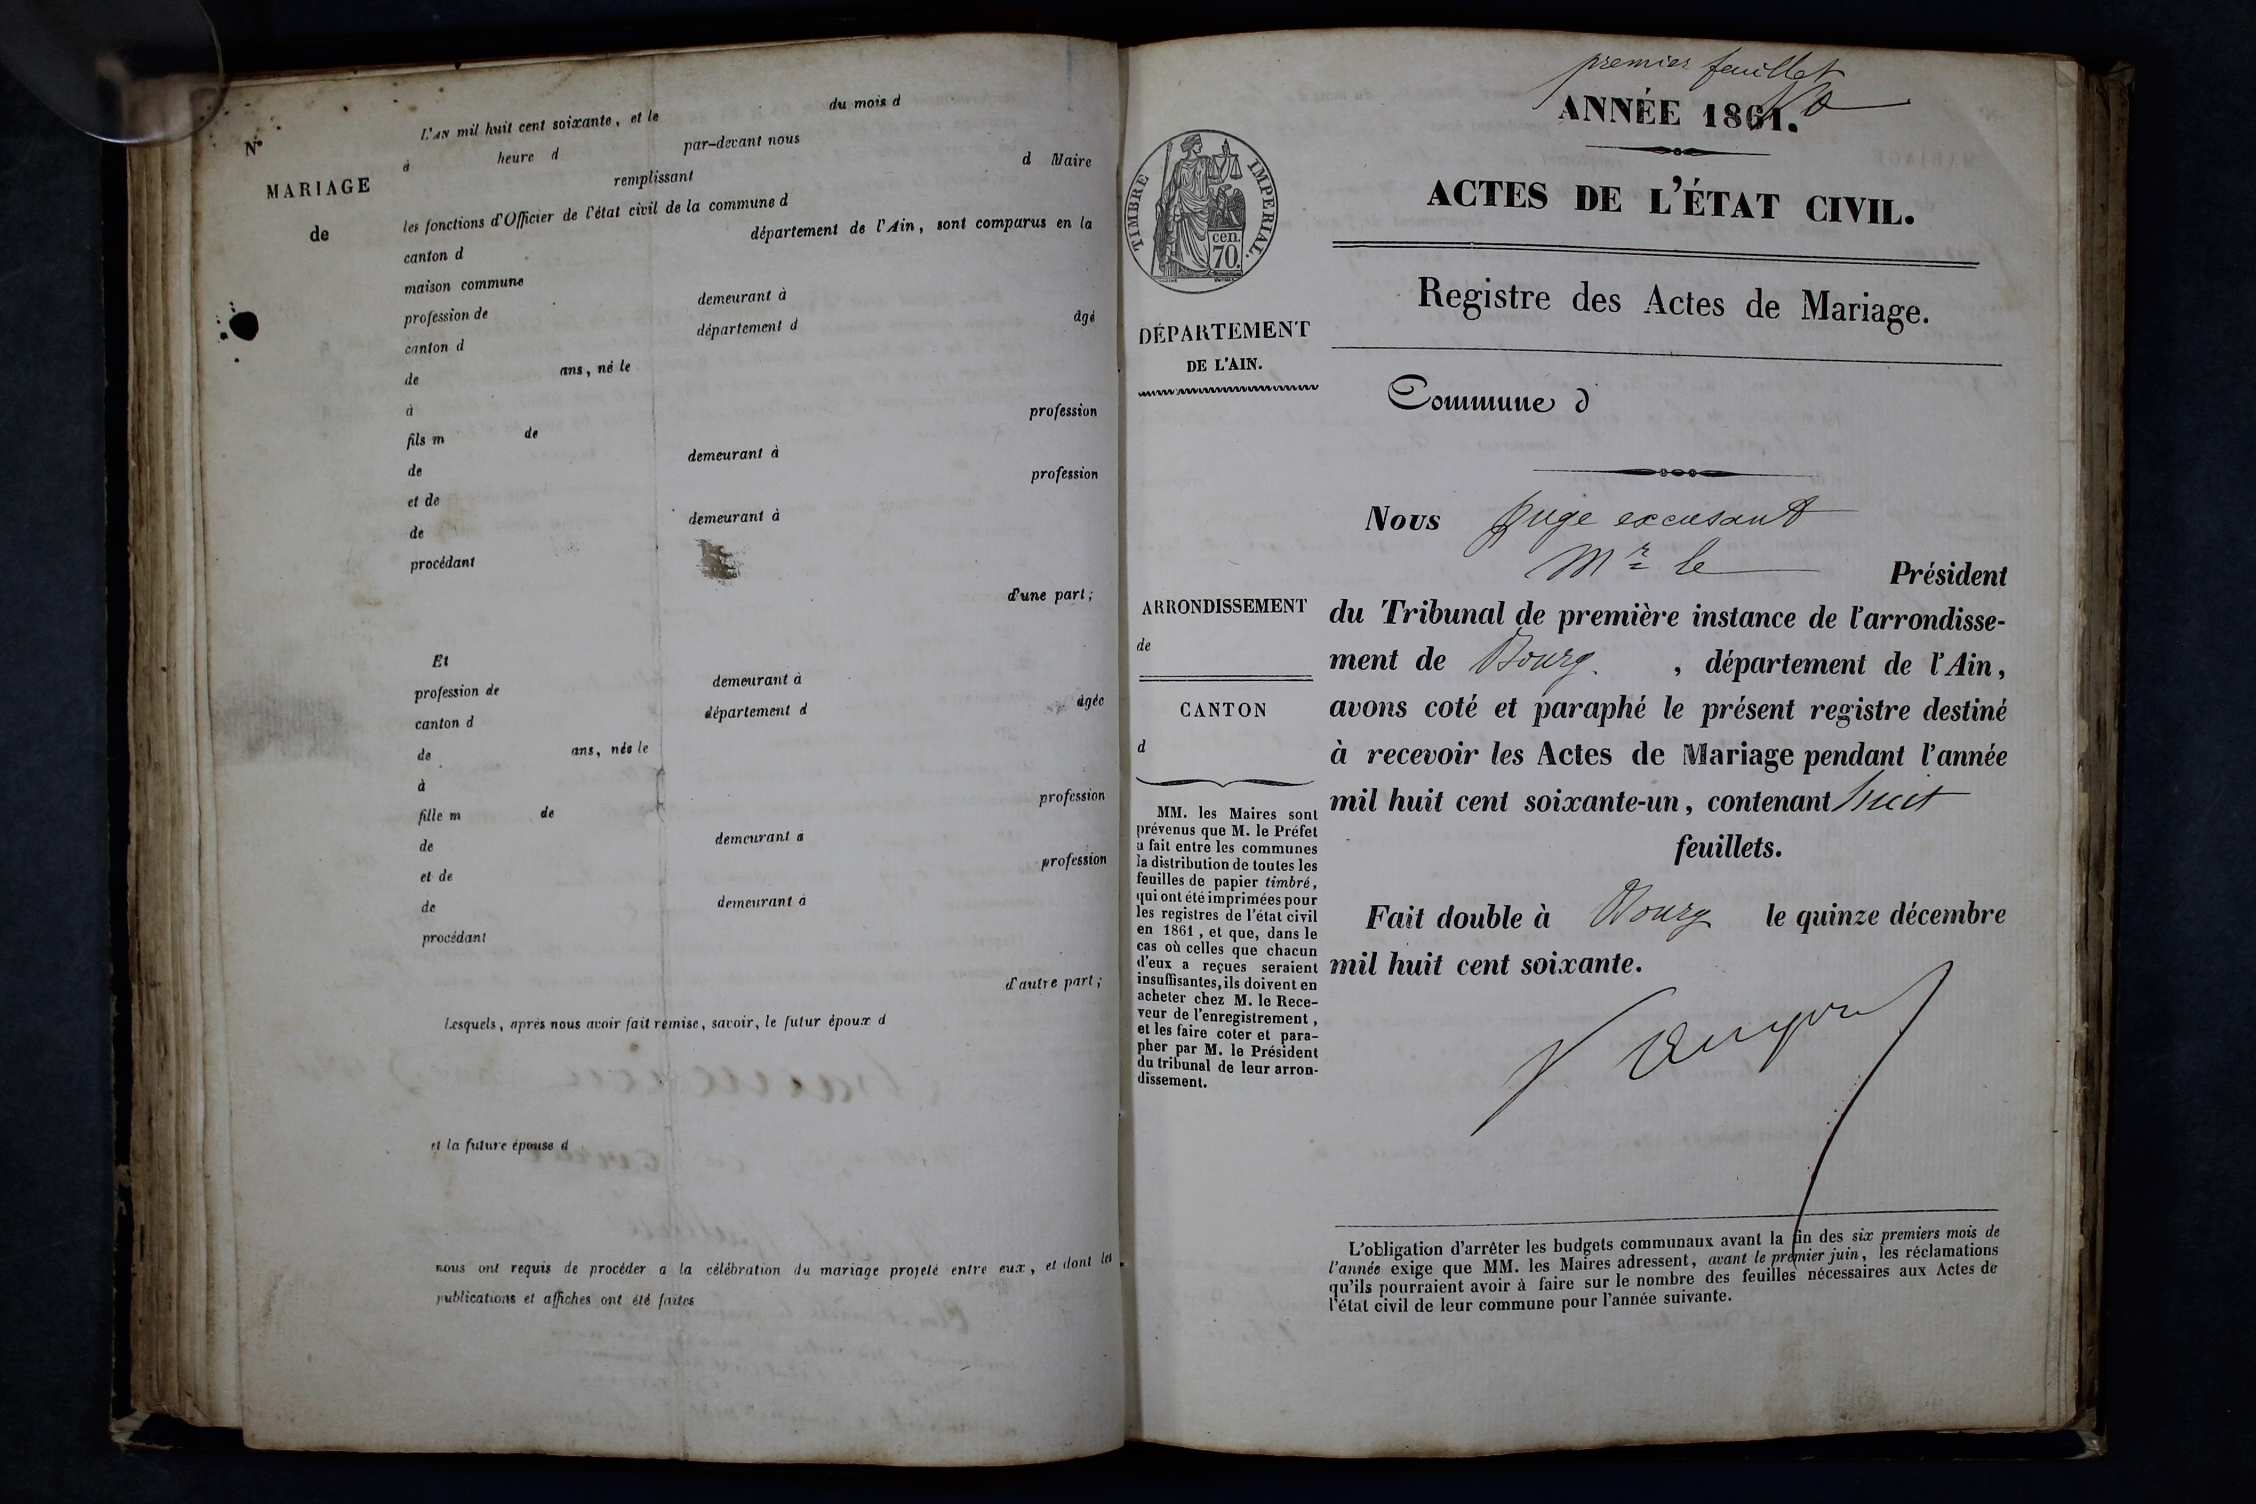 N°
MARIAGE
de
L'AN mil huit cent soixante, et le du mois d
à heure d par-devant nous
remplissant d Maire
les fonctions d'Officier de l'état civil de la commune d
canton d département de l'Ain, sont comparus en la
maison commune
profession de demeurant à
canton d département d âgé
de ans, né le
à
fils m de profession
de demeurant à
et de profession
de demeurant à
procédant
d'une part;
Et
profession de demeurant à
canton d département d âgée
de ans, née le
à
fille m de profession
de demeurant à
et de profession
de demeurant à
procédant
d'autre part;
Lesquels, après nous avoir fait remise, savoir, le futur époux d
et la future épouse d
nous ont requis de procéder a la célébration du mariage projeté entre eux, et dont les
publications et affiches ont été faites
premier feuillet
ANNÉE 1861.
ACTES DE L'ÉTAT CIVIL.
Registre des Actes de Mariage.
TIMBRE IMPERIAL.
cen.
70.
DÉPARTEMENT
DE L'AIN.
Commune d
ARRONDISSEMENT
de
CANTON
d
MM. les Maires sont
prévenus que M. le Préfet
a fait entre les communes
la distribution de toutes les
feuilles de papier timbré,
qui ont été imprimées pour
les registres de l'état civil
en 1861, et que, dans le
cas où celles que chacun
d'eux a reçues seraient
insuffisantes, ils doivent en
acheter chez M. le Rece-
veur de l'enregistrement,
et les faire coter et para-
pher par M. le Président
du tribunal de leur arron-
dissement.
Nous juge excusant
Mr le Président
du Tribunal de première instance de l'arrondisse-
ment de Bourg. , département de l'Ain,
avons coté et paraphé le présent registre destiné
à recevoir les Actes de Mariage pendant l'année
mil huit cent soixante-un, contenant huit
feuillets.
Fait double à Bourg le quinze décembre
mil huit cent soixante.
L'obligation d'arrêter les budgets communaux avant la fin des six premiers mois de
l'année exige que MM. les Maires adressent, avant le premier juin, les réclamations
qu'ils pourraient avoir à faire sur le nombre des feuilles nécessaires aux Actes de
l'état civil de leur commune pour l'année suivante.